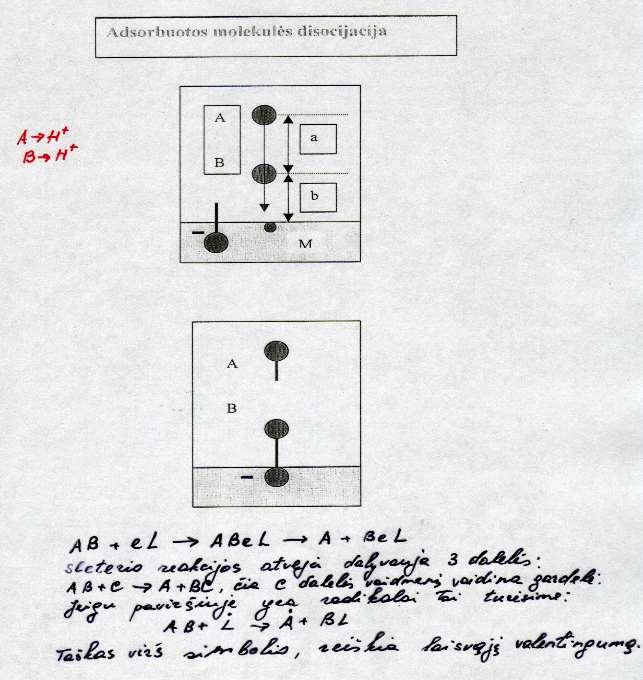 Adsorbuotos molekulės disocijacija
A → H⁺
B → H⁺
A
a
B
b
–
M
A
B
–
AB + eL → ABeL → A + BeL
reakcijos atveju dalyvauja 3 dalelės:
AB + C → A + BC, čia C dalelės vaidmenį vaidina gardelė.
Jeigu paviršiuje yra radikalai tai turėsime:
AB + L̇ → Ȧ + BL
Taškas virš simbolio, reiškia laisvąjį valentingumą.